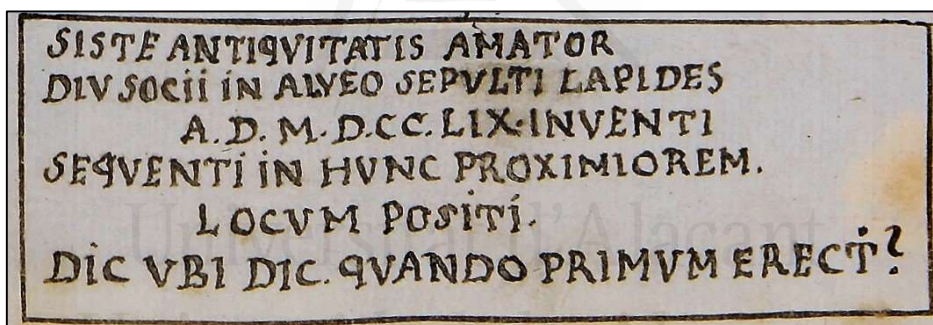 SISTE ANTIQVITATIS AMATOR
DIV SOCII IN ALVEO SEPVLTI LAPIDES
A. D. M. D. CC. LIX. INVENTI
SEQVENTI IN HVNC PROXIMIOREM.
LOCVM POSITI.
DIC VBI DIC. QVANDO PRIMVM ERECTI?
Universitat d'Alacant